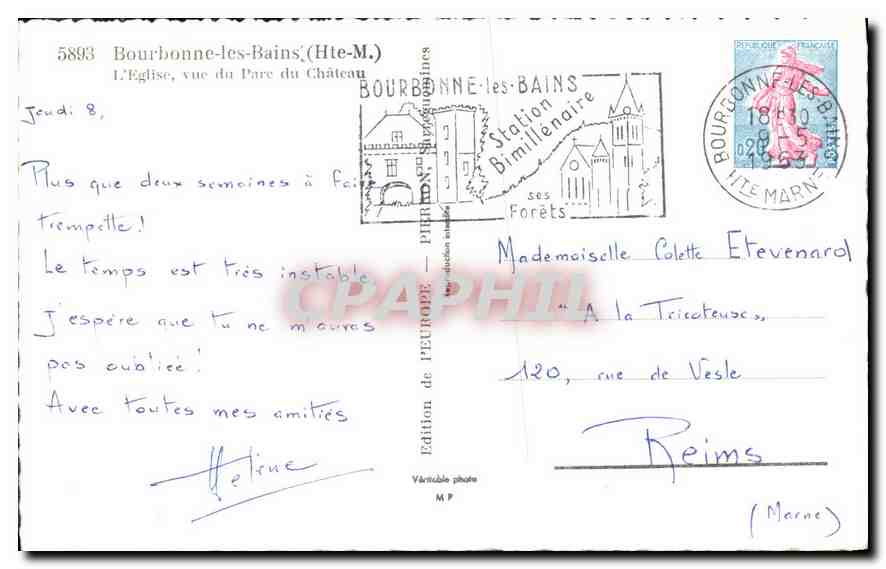 5893 Bourbonne-les-Bains (Hte-M.)
L'Eglise, vue du Parc du Château
Jeudi 8,
Plus que deux semaines à faire
trempette!
Le temps est très instable
J'espère que tu ne m'auras
pas oubliée!
Avec toutes mes amitiés
Helène
Edition de l'EUROPE — PIERRON, Sarreguemines
Reproduction interdite
Véritable photo
M P
BOURBONNE-les-BAINS
Station
Bimillénaire
ses
Forêts
REPUBLIQUE FRANÇAISE
0,20
BOURBONNE-LES-BAINS
18H30
9-5
1963
HTE MARNE
Mademoiselle Colette Etevenard
"A la Tricoteuse"
120, rue de Vesle
Reims
(Marne)
CPAPHIL